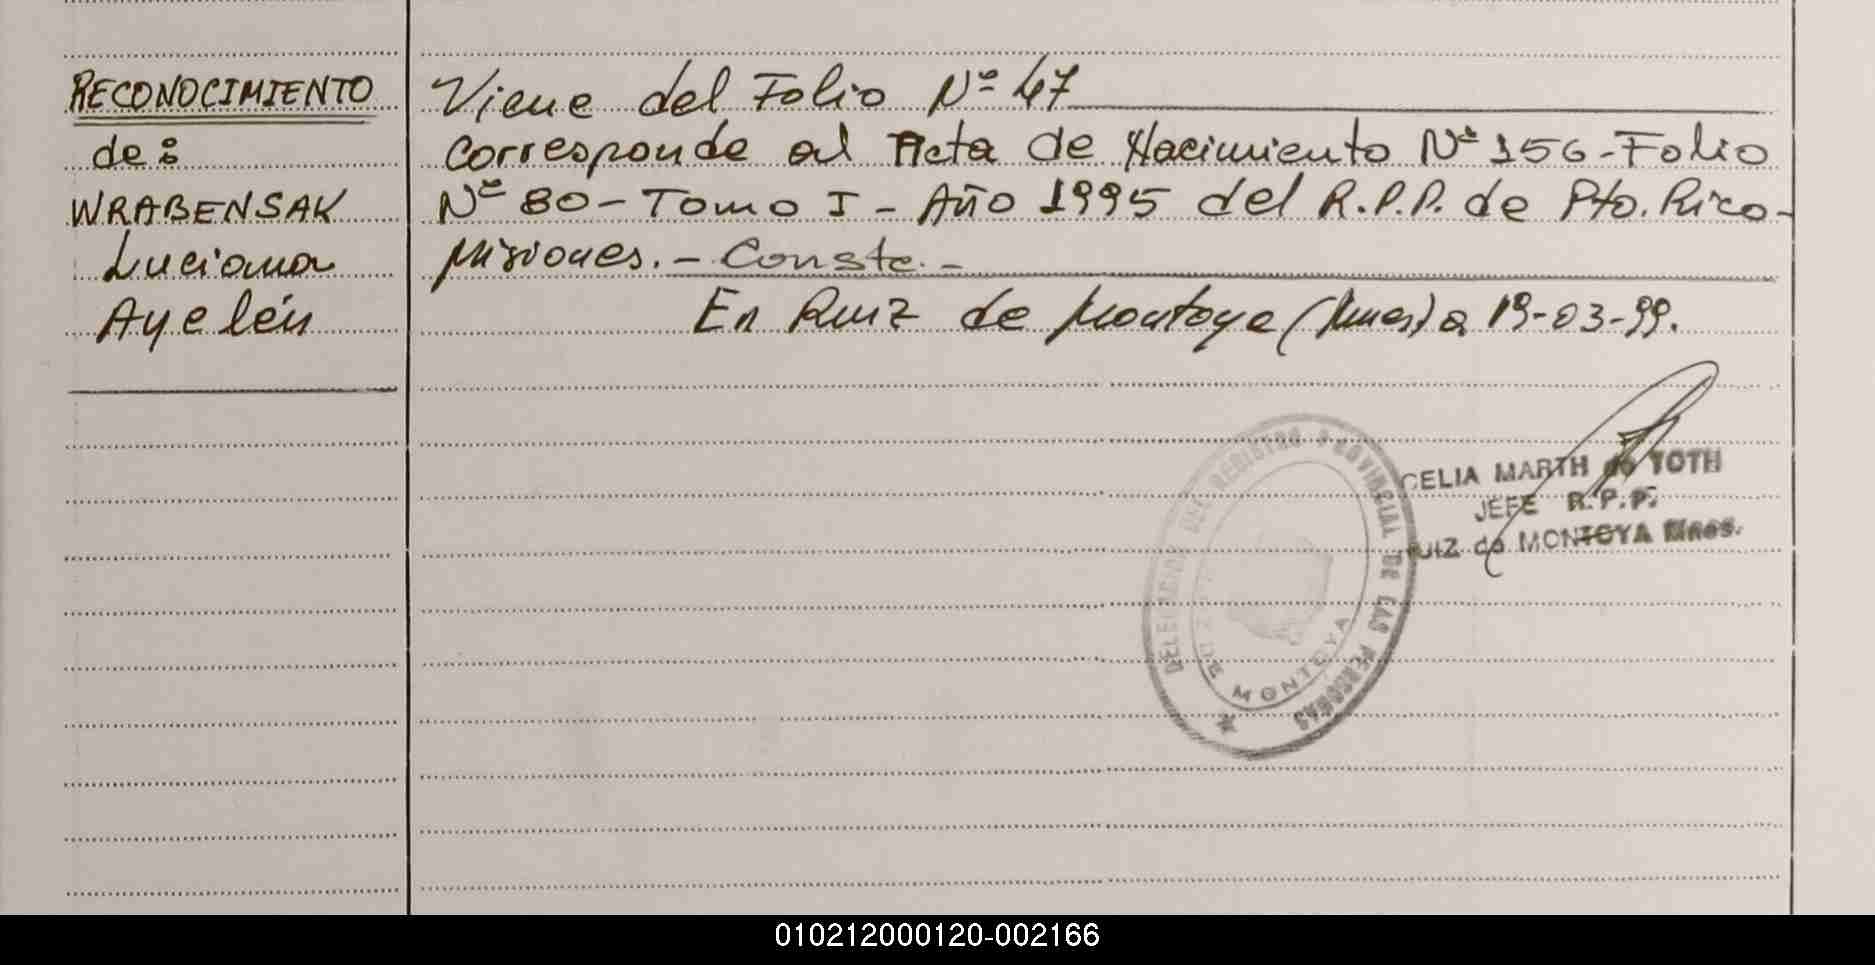 RECONOCIMIENTO
de:
WRABENSAK
Luciana
Ayelén
Viene del Folio Nº 47
Corresponde al Acta de Nacimiento Nº 156-Folio
Nº 80- Tomo I - Año 1995 del R.P.P. de Pto. Rico-
Misiones. - Conste. -
En Ruiz de Montoya (Mnes) a 19-03-99.
CELIA MARTH de TOTH
JEFE R.P.P.
RUIZ de MONTOYA Mnes.
DELEGACION DEL REGISTRO PROVINCIAL DE LAS PERSONAS
RUIZ DE MONTOYA
010212000120-002166